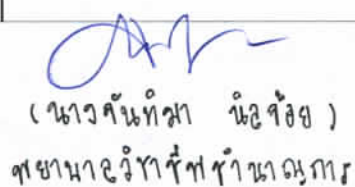 (นางจันทิมา นิลจ้อย)
พยาบาลวิชาชีพชำนาญการ